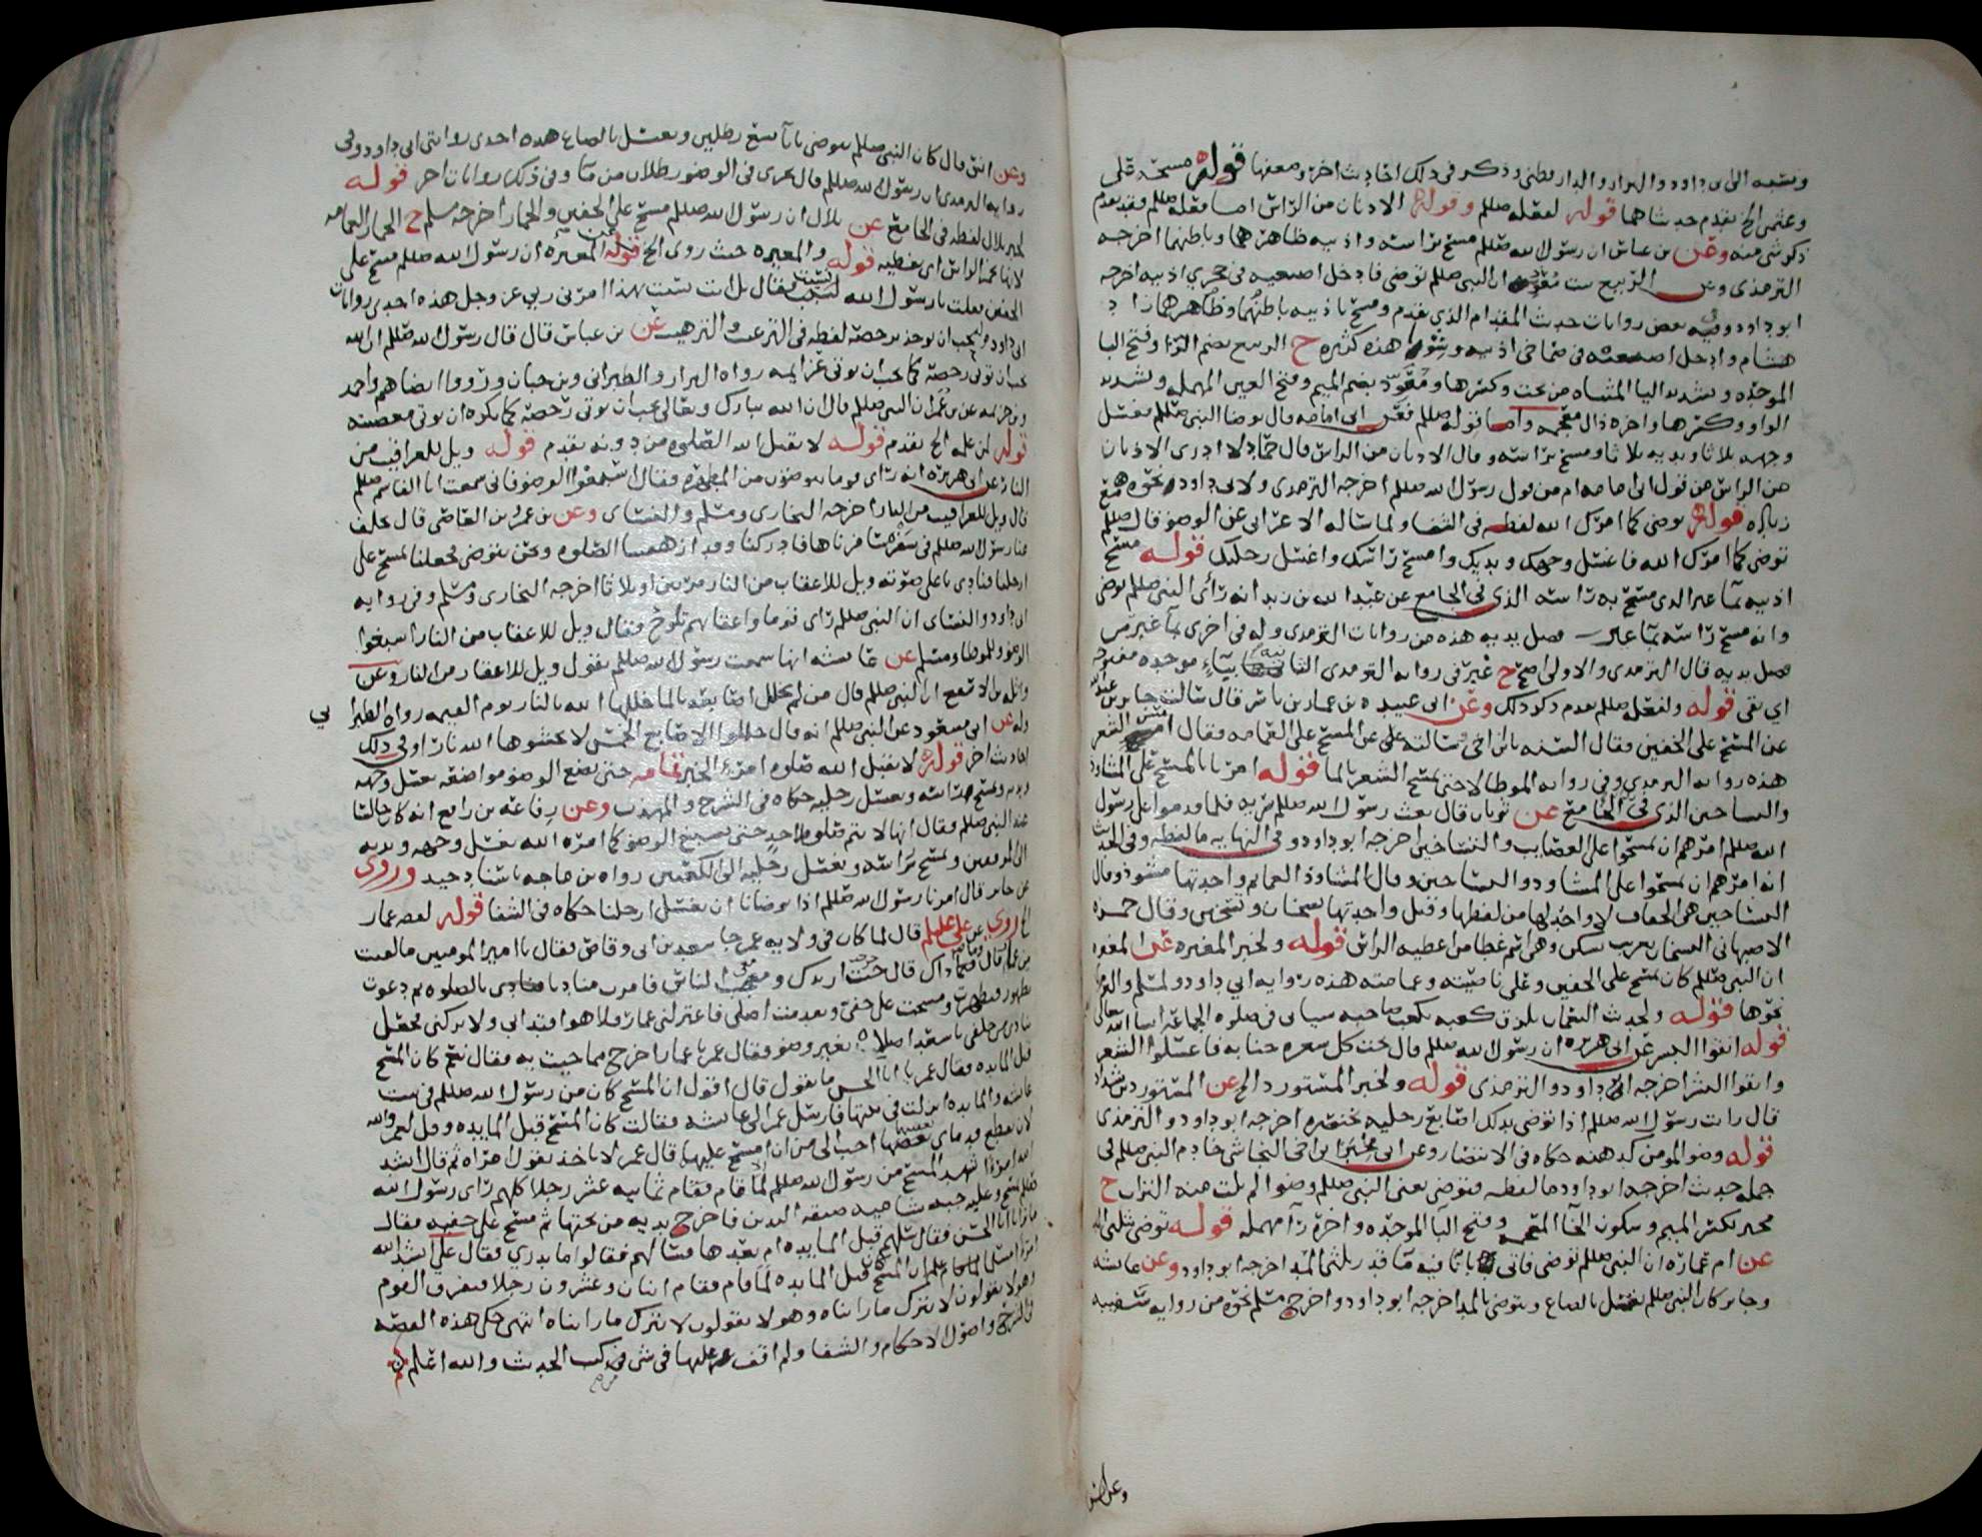 ونسبه الى ابي داود والبزار والدارقطني وذكر في ذلك احاديث اخر وضعفها قوله مسحه على
وعثمن الخ تقدم حديثاهما قوله لفعله صللم وقوله الاذنان من الراس اما فعله صللم فقد تقدم
ذكر شي منه وعن بن عباس ان رسول الله صللم مسح براسه واذنيه ظاهرهما وباطنهما اخرجه
الترمذي وعن الربيع بنت معوذ ان النبي صللم توضى فادخل اصبعيه في حجري اذنيه اخرجه
ابو داود وفي بعض روايات حديث المقدام الذي تقدم ومسح باذنيه باطنهما وظاهرهما زاد
هشام وادخل اصبعيه في صماخي اذنيه هذه كثيره ح الربيع بضم الرا وفتح البا
الموحده وتشديد اليا المثناه من تحت وكسرها ومعوذ بضم الميم وفتح العين المهمله وتشديد
الواو وكسرها واخره ذال معجمه واما قوله صللم فعن ابي امامه قال توضا النبي صللم فغسل
وجهه ثلاثا ويديه ثلاثا ومسح براسه وقال الاذنان من الراس قال حماد لا ادري الاذنان
من الراس من قول ابي امامه ام من قول رسول الله صللم اخرجه الترمذي ولابي داود نحوه مع
زياده قوله توضى كما امرك الله لفظه في الشفا ولما ساله الاعرابي عن الوضو قال صللم
توضى كما امرك الله فاغسل وجهك ويديك وامسح راسك واغسل رجليك قوله مسح
اذنيه بما غير الذي مسح به راسه الذي في الجامع عن عبد الله بن زيد انه راى النبي صللم توضى
وانه مسح راسه بما غير فضل يديه هذه من روايات الترمذي وله في اخرى بما غبر من
فضل يديه قال الترمذي والاولى اصح ح غبر في روايه الترمذي الثانيه بباء موحده مفتوحه
اي بقى قوله ولفعله صللم تقدم ذكر ذلك وعن ابي عبيده بن عمار بن ياسر قال سالت جابر بن عبد الله
عن المسح على الخفين فقال السنه يابن اخي وسالته عن المسح على العمامه فقال امس الشعر
هذه روايه الترمذي وفي روايه الموطا لا حتى يمسح الشعر بالما قوله امرنا بالمسح على المشاوذ
والتساخين الذي في الجامع عن ثوبان قال بعث رسول الله صللم سريه فلما قدموا على رسول
الله صللم امرهم ان يمسحوا على العصايب والتساخين اخرجه ابو داود وفي النهايه ما لفظه وفي الحديث
انه امرهم ان يمسحوا على المشاوذ والتساخين وقال المشاوذ العمايم واحدتها مشوذ وقال
التساخين هي الخفاف لا واحد لها من لفظها وقيل واحدتها تسخان وتسخن وقال حمزه
الاصبهاني التسخان تعريب تشكن وهي اسم غطا من اغطيه الراس قوله ولخبر المغيره عن المغيره
ان النبي صللم كان يمسح على الخفين وعلى ناصيته وعمامته هذه روايه ابي داود ولمسلم والترمذي
نحوها قوله ولحديث النعمان يلزق كعبه بكعب صاحبه سياتي في صلوه الجماعه ان شا الله تعالى
قوله انقوا البشر عن ابي هريره ان رسول الله صللم قال تحت كل شعره جنابه فاغسلوا الشعر
وانقوا البشر اخرجه ابو داود والترمذي قوله ولخبر المستورد الخ عن المستورد بن شداد
قال رايت رسول الله صللم اذا توضى يدلك اصابع رجليه بخنصره اخرجه ابو داود والترمذي
قوله وضو المومن كدهنه حكاه في الانتصار وعن ابي مخبر بن اخي النجاشي خادم النبي صللم في
جمله حديث اخرجه ابو داود ما لفظه فتوضى يعني النبي صللم وضوا لم يلت منه التراب ح
مخبر بكسر الميم وسكون الخا المعجمه وفتح البا الموحده واخره را مهمله قوله توضى بثلثي الخ
عن ام عماره ان النبي صللم توضى فاتى بانا فيه ما قدر ثلثي المد اخرجه ابو داود وعن عائشه
وجابر كان النبي صللم يغتسل بالصاع ويتوضى بالمد اخرجه ابو داود واخرج مسلم نحوه من روايه سفينه
وعن انس
وعن انس قال كان النبي صللم يتوضى بانا يسع رطلين ويغتسل بالصاع هذه احدى روايتي ابي داود وفي
روايه الترمذي ان رسول الله صللم قال يجزي في الوضو رطلان من ما وفي ذلك روايات اخر قوله
لخبر بلال لفظه في الجامع عن بلال ان رسول الله صللم مسح على الخفين والخمار اخرجه مسلم ح الخمار العمامه
لانها تخمر الراس اي تغطيه قوله والمغيره حيث روى الخ قوله عن المغيره ان رسول الله صللم مسح على
الخفين فقلت يا رسول الله نسيت فقال بل انت نسيت بهذا امرني ربي عز وجل هذه احدى روايات
ابي داود قوله يحب ان يوخذ برخصه لفظه في الترغيب والترهيب عن بن عباس قال قال رسول الله صللم ان الله
يحب ان توتى رخصه كما يحب ان توتى عزايمه رواه البزار والطبراني وبن حبان ورووا ايضا هم واحمد
وبن خزيمه عن بن عمر ان النبي صللم قال ان الله تبارك وتعالى يحب ان توتى رخصه كما يكره ان توتى معصيته
قوله لمن علمه الخ تقدم قوله لا تقبل الله الصلوه من دونه تقدم قوله ويل للعراقيب من
النار عن ابي هريره انه راى قوما يتوضون من المطهره فقال اسبغوا الوضو فاني سمعت ابا القاسم صللم
قال ويل للعراقيب من النار اخرجه البخاري ومسلم والنسائي وعن بن عمرو بن العاص قال تخلف
عنا رسول الله صللم في سفره سافرناها فادركنا وقد ارهقتنا الصلوه ونحن نتوضى فجعلنا نمسح على
ارجلنا فنادى باعلى صوته ويل للاعقاب من النار مرتين او ثلاثا اخرجه البخاري ومسلم وفي روايه
ابي داود والنسائي ان النبي صللم راى قوما واعقابهم تلوح فقال ويل للاعقاب من النار اسبغوا
الوضو وللموطا ومسلم عن عائشه انها سمعت رسول الله صللم يقول ويل للاعقاب من النار وعن
واثله بن الاسقع ان النبي صللم قال من لم يخلل اصابعه بالما خللها الله بالنار يوم القيمه رواه الطبراني
وله عن ابن مسعود عن النبي صللم انه قال خللوا الاصابع الخمس لا يحشوها الله نارا وفي ذلك
احاديث اخر قوله لا يقبل الله صلوه امرء الخبر تمامه حتى يضع الوضو مواضعه يغسل وجهه
ويديه ويمسح براسه ويغسل رجليه حكاه في الشرح والمهذب وعن رفاعه بن رافع انه كان جالسا
عند النبي صللم فقال انها لا تتم صلوه احد حتى يسبغ الوضو كما امره الله يغسل وجهه ويديه
الى المرفقين ويمسح براسه ويغسل رجليه الى الكعبين رواه بن ماجه باسناد جيد وروى
عن جابر قال امرنا رسول الله صللم اذا توضانا ان نغسل ارجلنا حكاه في الشفا قوله لقصه عمار
لما روي عن علي عليلم قال لما كان في ولايه عمر جا سعد بن ابي وقاص فقال يا امير المومنين ما لقيت
من عمار قال وما ذاك قال خرجت اريدك ومعي الناس فامرت مناديا فنادى بالصلوه ثم دعوت
بطهور فتطهرت ومسحت على خفي وتقدمت اصلي فاعتزلني عمار فلا هو اقتدى بي ولا تركني فجعل
ينادي من خلفي يا سعد اصلاه بغير وضو فقال عمر يا عمار اخرج مما جيت به فقال نعم كان المسح
قبل المايده فقال عمر يا ابا الحسن ما تقول قال اقول ان المسح كان من رسول الله صللم في بيت
عائشه والمايده انزلت في بيتها فارسل عمر الى عائشه فقالت كان المسح قبل المايده وقل لعمر والله
لان تقطع قدماي بعقبيهما احب الي من ان امسح عليهما قال عمر لا ناخذ بقول امراه ثم قال انشد
الله امرءا شهد المسح من رسول الله صللم لما قام فقام ثمانيه عشر رجلا كلهم راى رسول الله
صللم يمسح وعليه جبه شاميه ضيقه اليدين فاخرج يديه من تحتها ثم مسح على خفيه فقال
ما ترى يا ابا الحسن فقال سلهم قبل المايده ام بعدها فسالهم فقالوا ما ندري فقال علي انشد الله
امرءا مسلما علم ان المسح كان قبل المايده لما قام فقام اثنان وعشرون رجلا فتفرق القوم
وهولا يقولون لا نترك ما راينا وهولا يقولون لا نترك ما راينا انتهى حكى هذه القصه
في الشرح واصول الاحكام والشفا ولم اقف عليها في شي من كتب الحديث والله اعلم